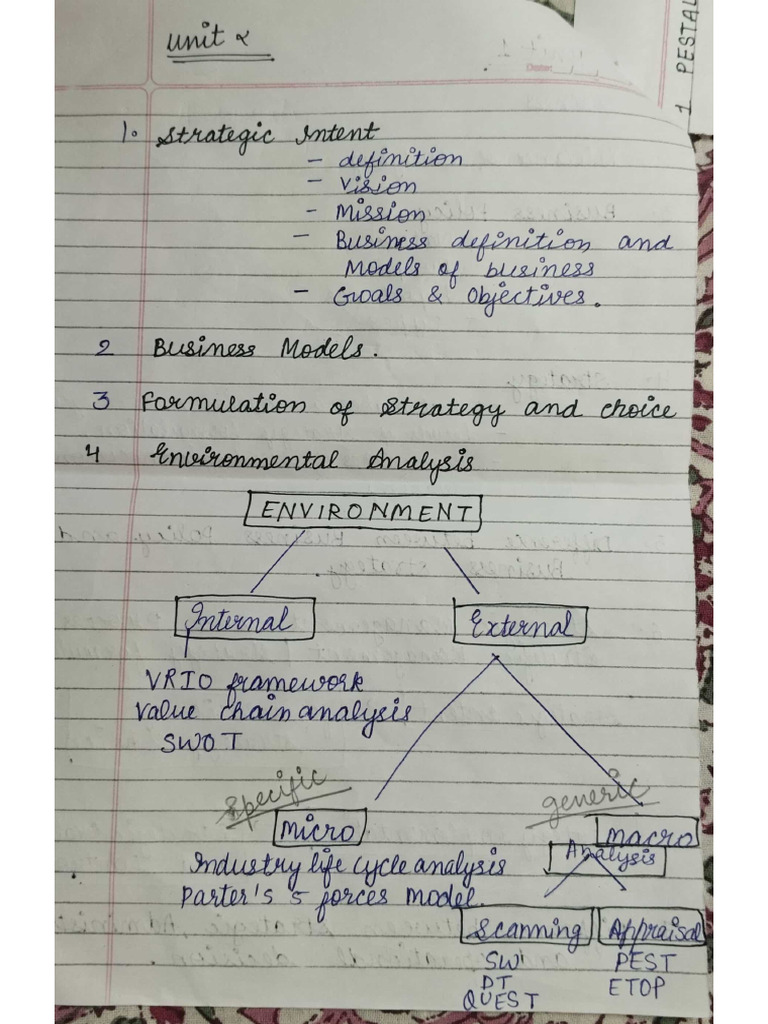 unit 2
Date:
1 PESTAL
1. Strategic Intent
- definition
- Vision
- Mission
- Business definition and
Models of business
- Goals & Objectives.
2 Business Models.
3 Formulation of strategy and choice
4 Environmental Analysis
ENVIRONMENT
Internal
External
VRIO framework
Value chain analysis
SWOT
specific
generic
Micro
macro
Industry life cycle analysis
Analysis
Parter's 5 forces model.
Scanning
Appraisal
SW
PEST
DT
ETOP
QUEST